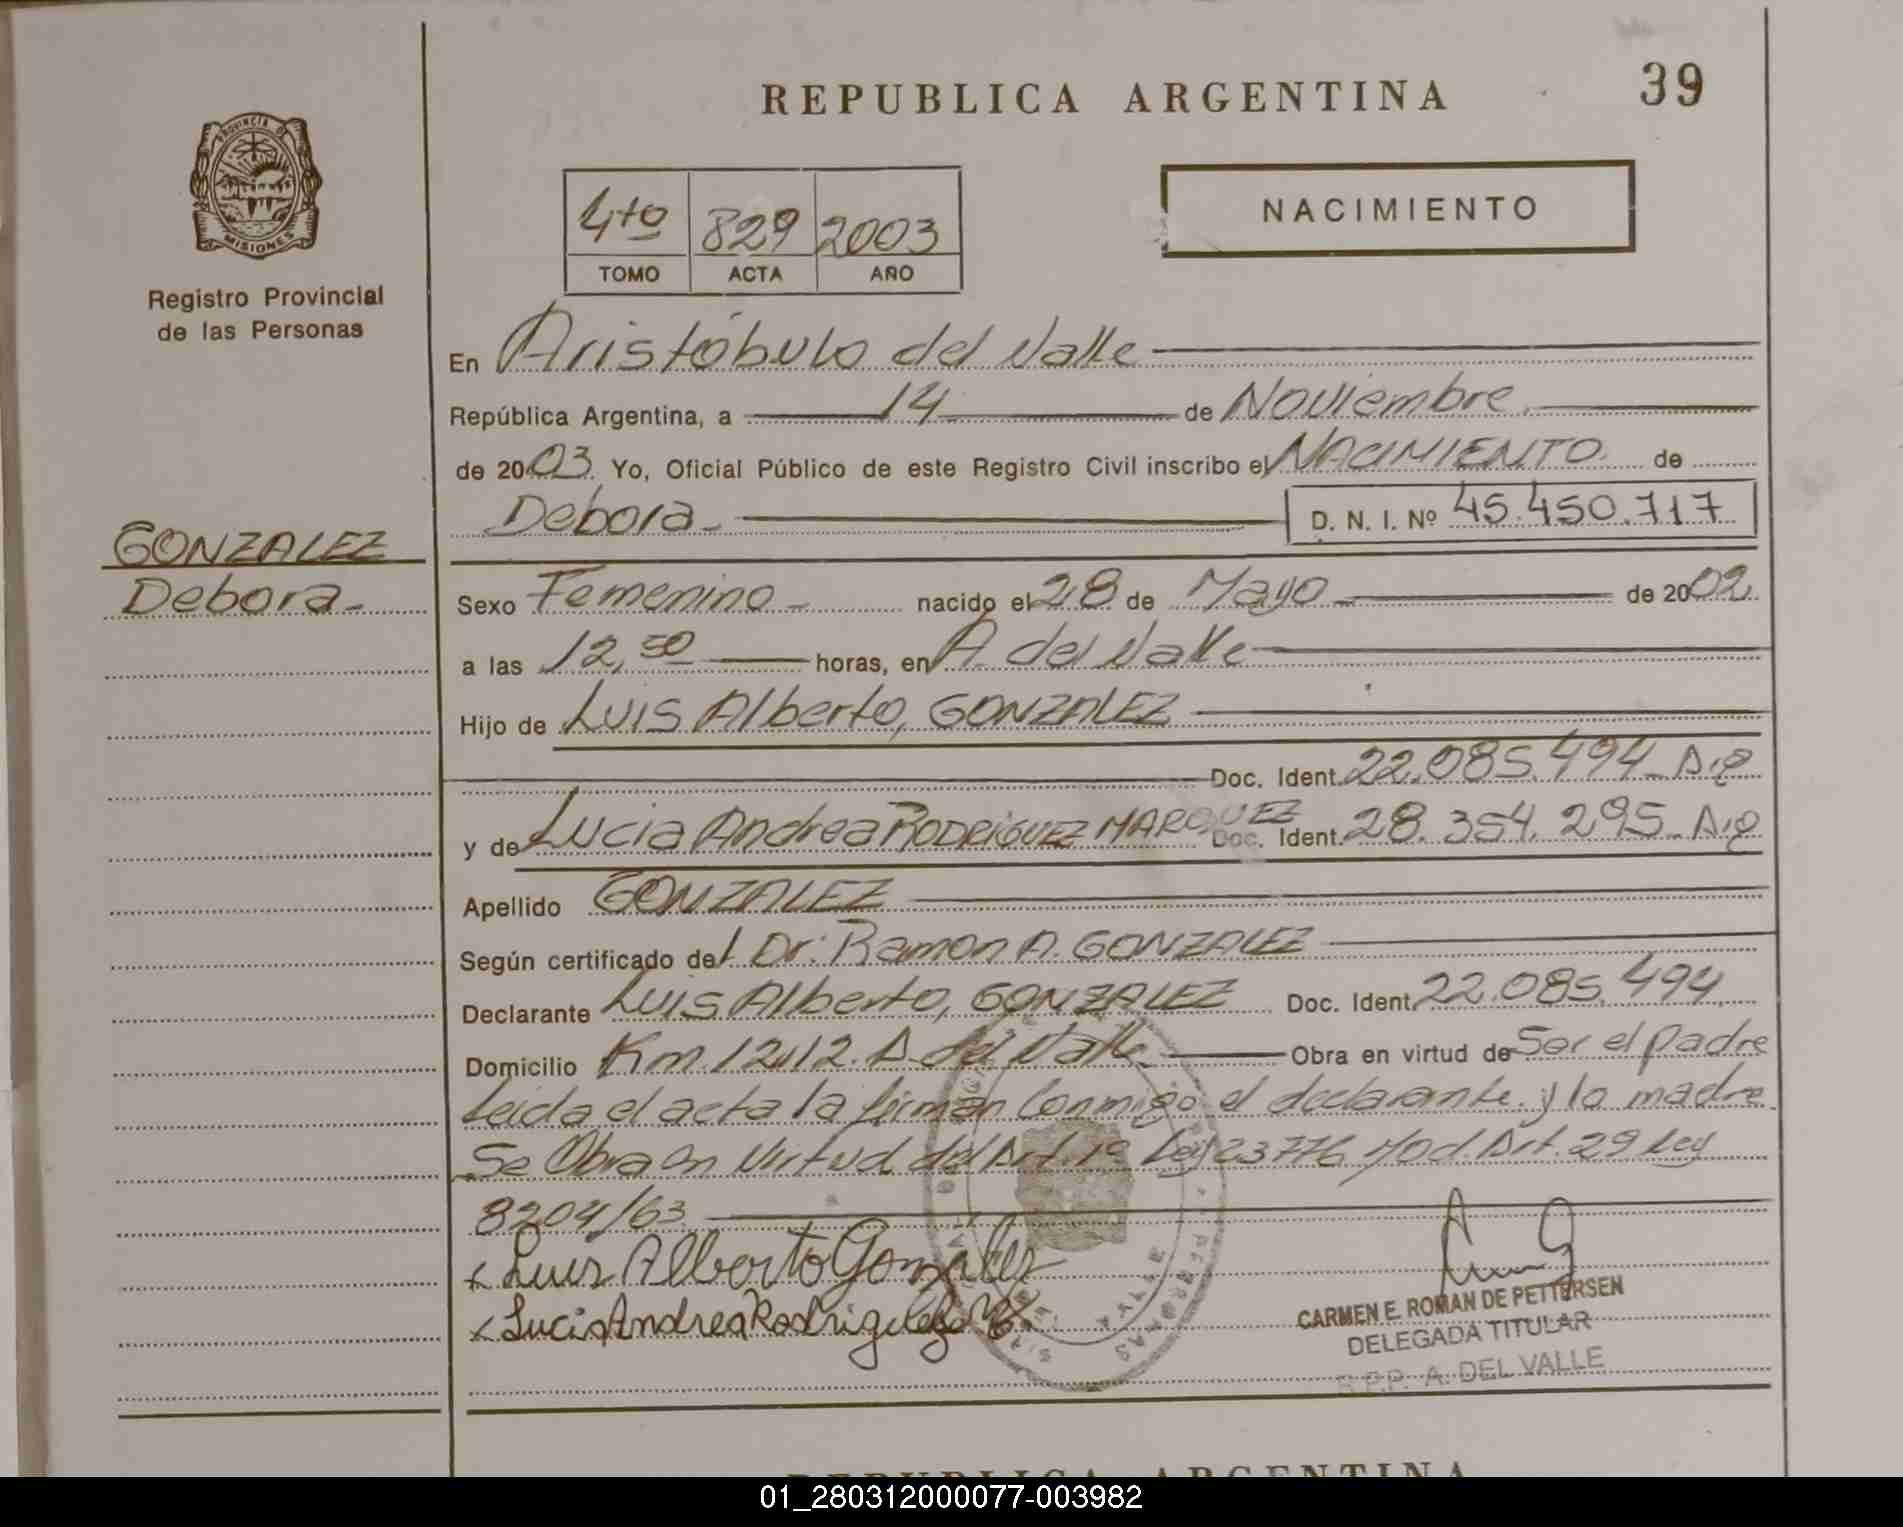 REPUBLICA ARGENTINA
39
PROVINCIA DE
MISIONES
Registro Provincial
de las Personas
4to 829 2003
TOMO ACTA AÑO
NACIMIENTO
En Aristóbulo del Valle
República Argentina, a 14 de Noviembre
de 2003. Yo, Oficial Público de este Registro Civil inscribo el NACIMIENTO de
Debora
D. N. I. Nº 45.450.717
GONZALEZ
Debora
Sexo Femenino nacido el 28 de Mayo de 2002
a las 12,50 horas, en A. del Valle
Hijo de Luis Alberto, GONZALEZ
Doc. Ident. 22.085.494
y de Lucia Andrea RODRIGUEZ MARQUEZ Doc. Ident. 28.354.295
Apellido GONZALEZ
Según certificado del Dr. Ramon A. GONZALEZ
Declarante Luis Alberto, GONZALEZ Doc. Ident. 22.085.494
Domicilio Km. 1212. A. del Valle Obra en virtud de Ser el padre
Leida el acta la firman Conmigo el declarante y la madre
Se Obra en Virtud del Art. 1º Ley 23776 Mod. Art. 29 Ley
8204/63
Luis Alberto Gonzalez
Lucia Andrea
CARMEN E. ROMAN DE PETTERSEN
DELEGADA TITULAR
R.P.P. A. DEL VALLE
REPUBLICA ARGENTINA
01_280312000077-003982